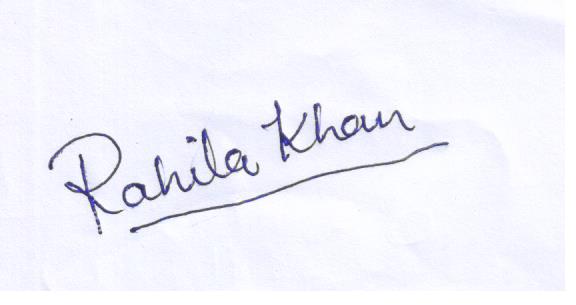 Rahila Khan